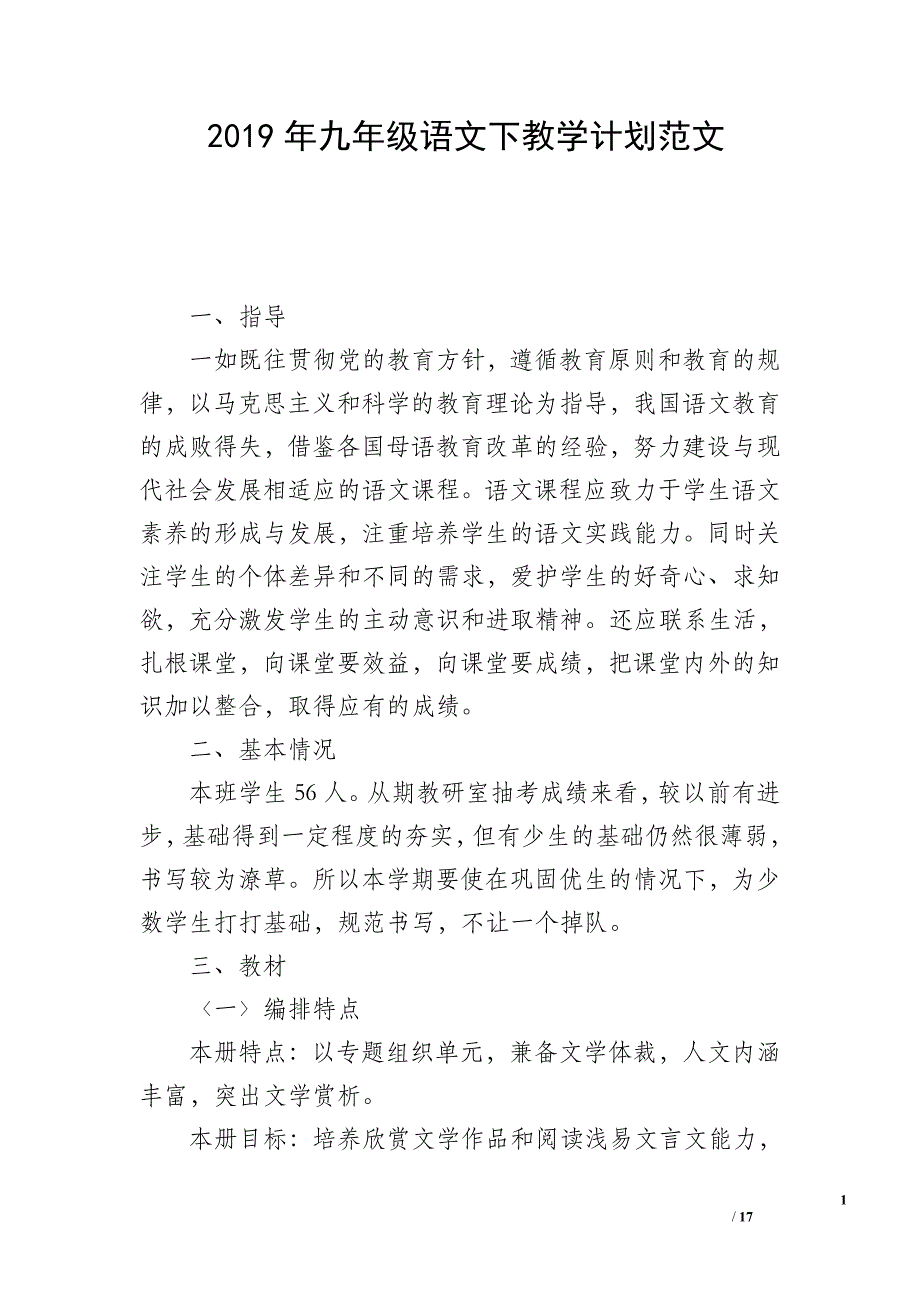 2019 年九年级语文下教学计划范文
一、指导
一如既往贯彻党的教育方针，遵循教育原则和教育的规
律，以马克思主义和科学的教育理论为指导，我国语文教育
的成败得失，借鉴各国母语教育改革的经验，努力建设与现
代社会发展相适应的语文课程。语文课程应致力于学生语文
素养的形成与发展，注重培养学生的语文实践能力。同时关
注学生的个体差异和不同的需求，爱护学生的好奇心、求知
欲，充分激发学生的主动意识和进取精神。还应联系生活，
扎根课堂，向课堂要效益，向课堂要成绩，把课堂内外的知
识加以整合，取得应有的成绩。
二、基本情况
本班学生 56 人。从期教研室抽考成绩来看，较以前有进
步，基础得到一定程度的夯实，但有少生的基础仍然很薄弱，
书写较为潦草。所以本学期要使在巩固优生的情况下，为少
数学生打打基础，规范书写，不让一个掉队。
三、教材
〈一〉编排特点
本册特点：以专题组织单元，兼备文学体裁，人文内涵
丰富，突出文学赏析。
本册目标：培养欣赏文学作品和阅读浅易文言文能力，
1
/ 17